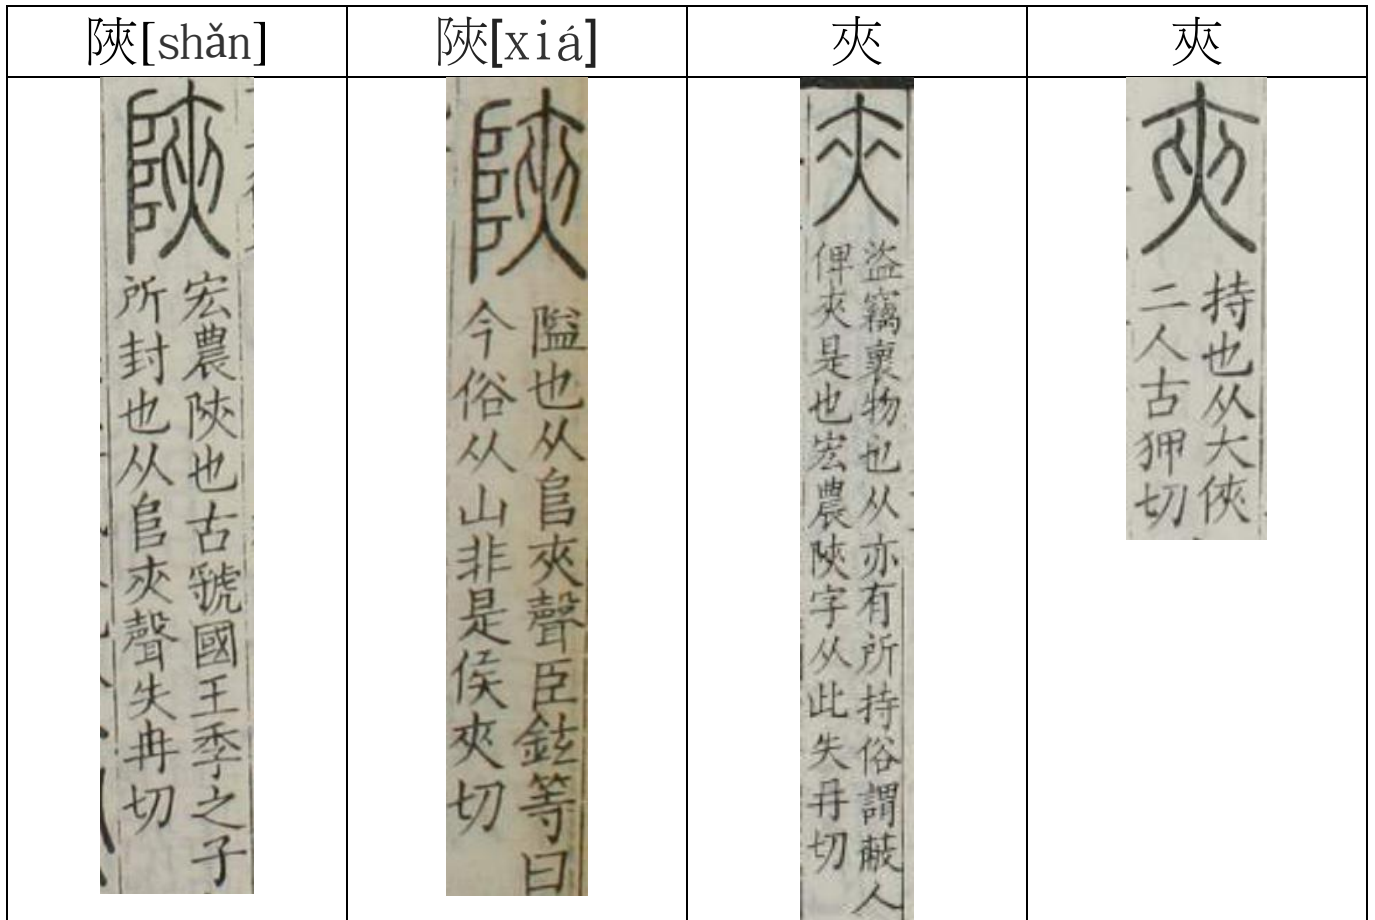 陝[shǎn]
陜[xiá]
㚒
夾
陝
宏農陝也古虢國王季之子
所封也从𨸏㚒聲失冉切
陜
隘也从𨸏夾聲臣鉉等曰
今俗从山非是侯夾切
㚒
盜竊褱物也从亦有所持俗謂蔽人
俾㚒是也宏農陝字从此失冄切
夾
持也从大俠
二人古狎切